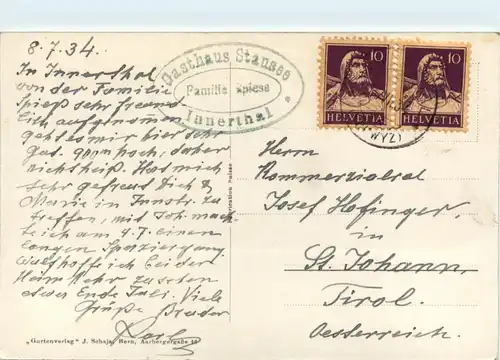 8.7.34.
In Innerthal
von der Familie
Spieß sehr freund-
lich aufgenommen
geht es mir hier sehr
gut. 900m hoch, daher
nicht heiß. Hat mich
sehr gefreut Dich &
Marie in Innsbr. zu
treffen, mit Joh. mach-
te ich am 4.7. einen
langen Spaziergang
hoffe ich bei der
Heimkehr zu
etwa Ende Juli. Viele
Grüße Bruder
Karl
Gasthaus Stausee
Familie Spiess
Innerthal
10
HELVETIA
10
HELVETIA
(SCHWYZ)
Herrn
Kommerzialrat
Josef Hofinger,
in
St. Johann,
Tirol.
Oesterreich.
„Gurtenverlag" J. Schaja, Bern, Aarbergergaße